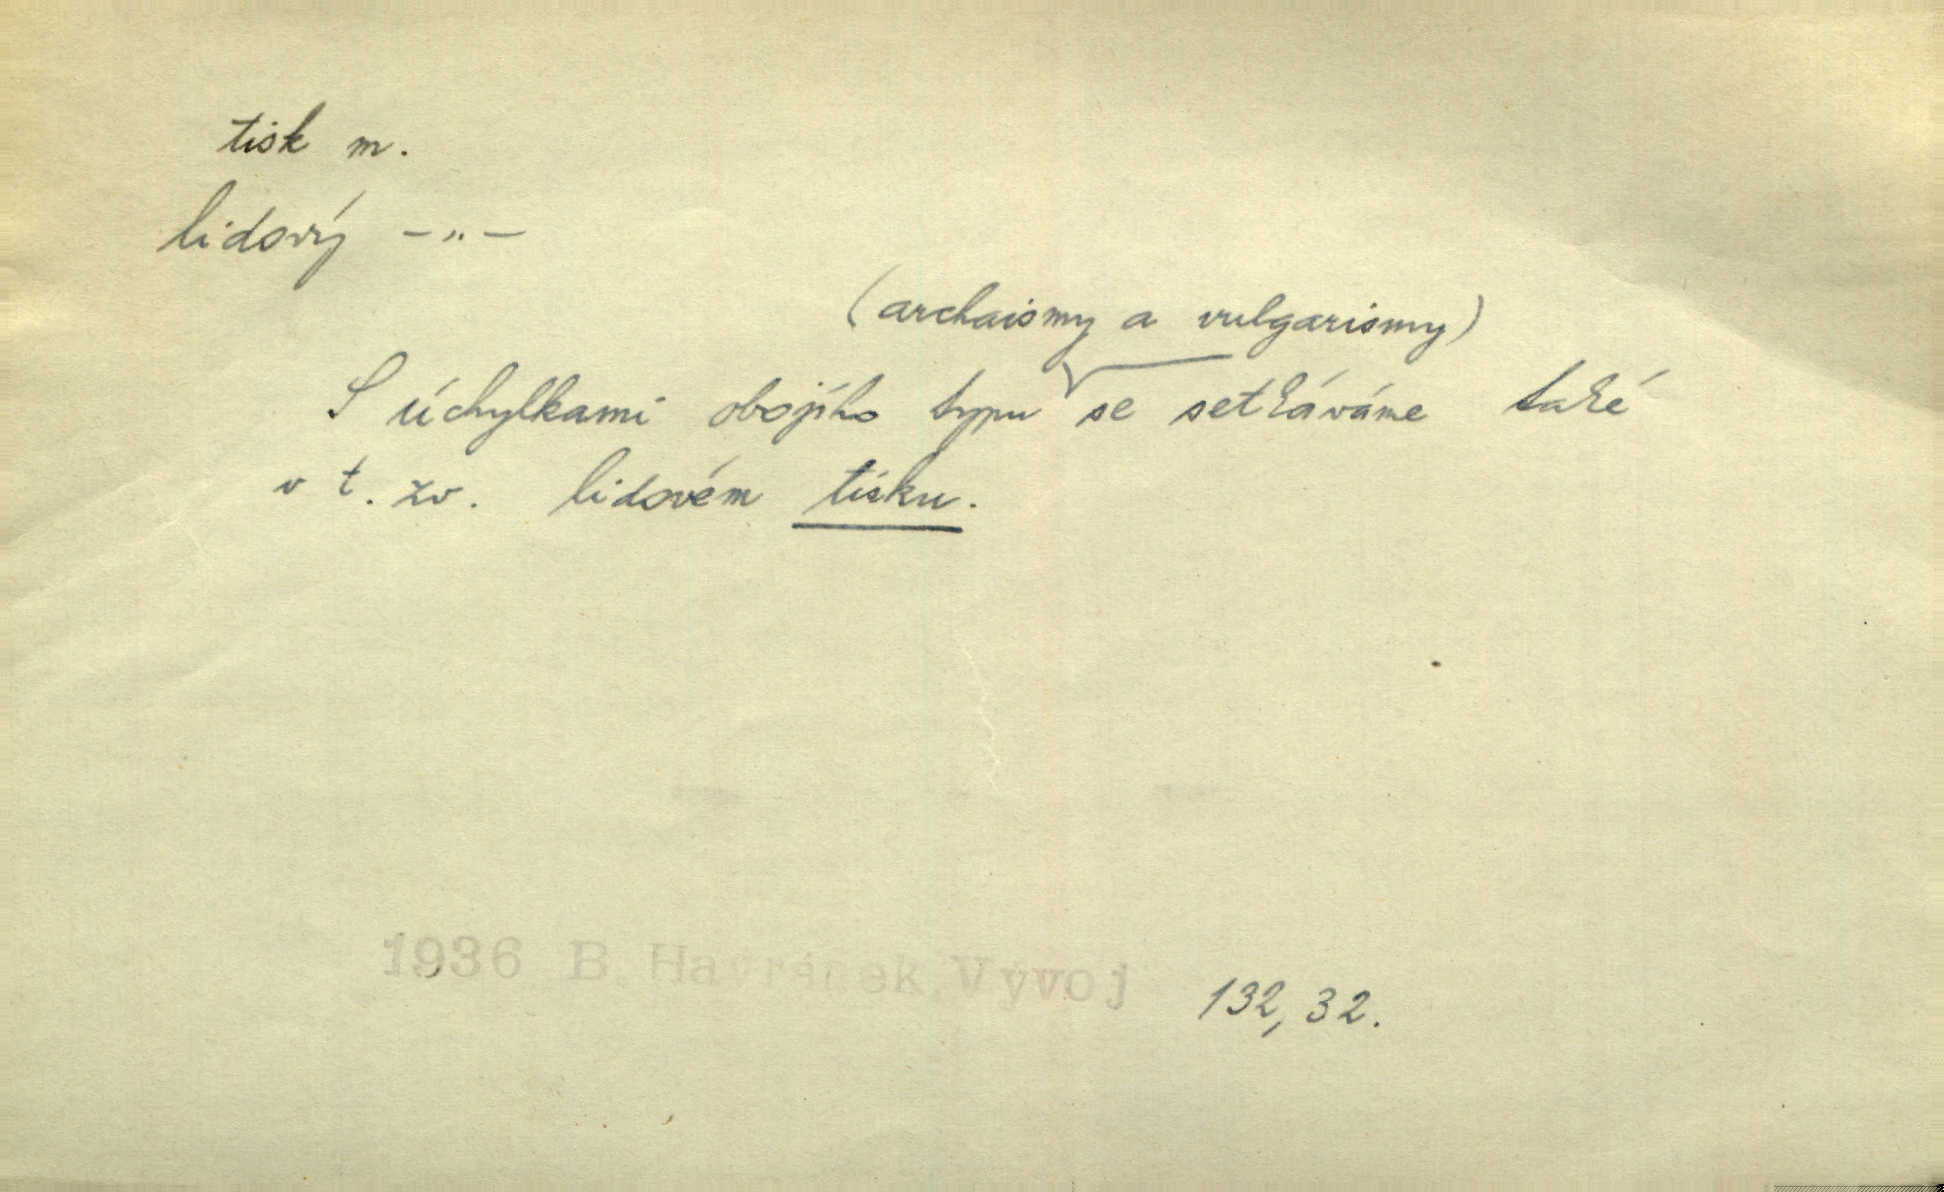 tisk m.
lidový –„–
(archaismy a vulgarismy)
S úchylkami obojího typu se setkáváme také
v t. zv. lidovém tisku.
1936 B. Havránek, Vývoj
132, 32.